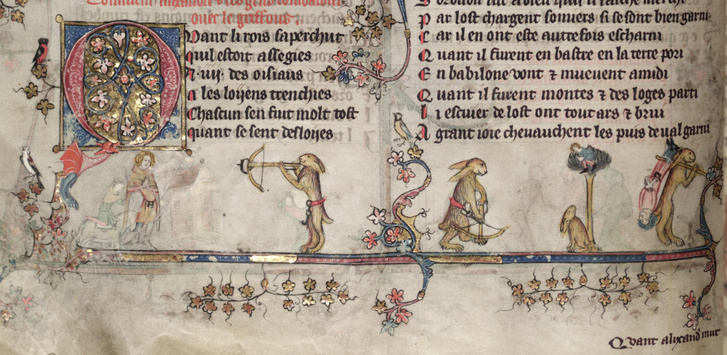 Comment alixandre
oste le griffons
Quant li rois saperchut
quil estoit assegies
A .iiij. des oisiaus
a les loijens trenchies
Chascun sen fuit molt tost
quant se sent desloijes
Par lost chargent somiers si se sont bien garni
Car il en ont este autrefois escharni
Quant il furent en bastre en la terre pori
En babilone vont ⁊ muevent a midi
Quant il furent montes ⁊ des loges parti
li escuier de lost ont tout ars ⁊ brui
A grant ioie chevauchent les puis de val garni
Quant alixand